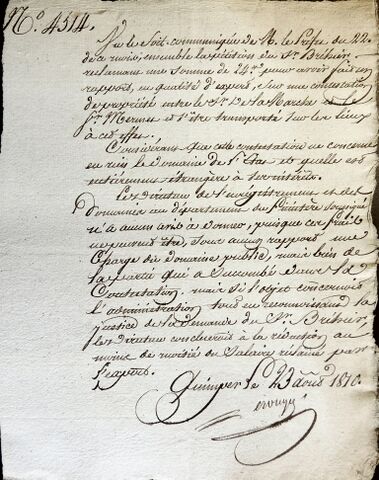 N.° 4514.
Vu le soit communiqué de M. le Préfet du 22
de ce mois, ensemble la pétition du Sr. Bréhier
réclamant une somme de 24 pour avoir fait un
rapport, en qualité d'expert, sur une contestation
de propriété entre le Sr. De la Marche et le
Sr. et s'être transporté sur les lieux
à cet effet.
Considérant que cette contestation ne concerne
en rien le Domaine de l'Etat et qu'elle est
entièrement étrangère à
Le Directeur de l'enregistrement et des
Domaines au département du Finistère soussigné
n'a aucun avis à donner, puisque ces frais
ne peuvent être, sous aucun rapport une
charge du domaine public, mais bien de
la partie qui a succombé dans la
Contestation, mais si l'objet concernait
l'administration tout en reconnaissant la
justice de la demande du Sr. Bréhier,
le directeur conclurait à la réduction au
moins de moitié du salaire réclamé par
l'expert.
Quimper le 23 1810.